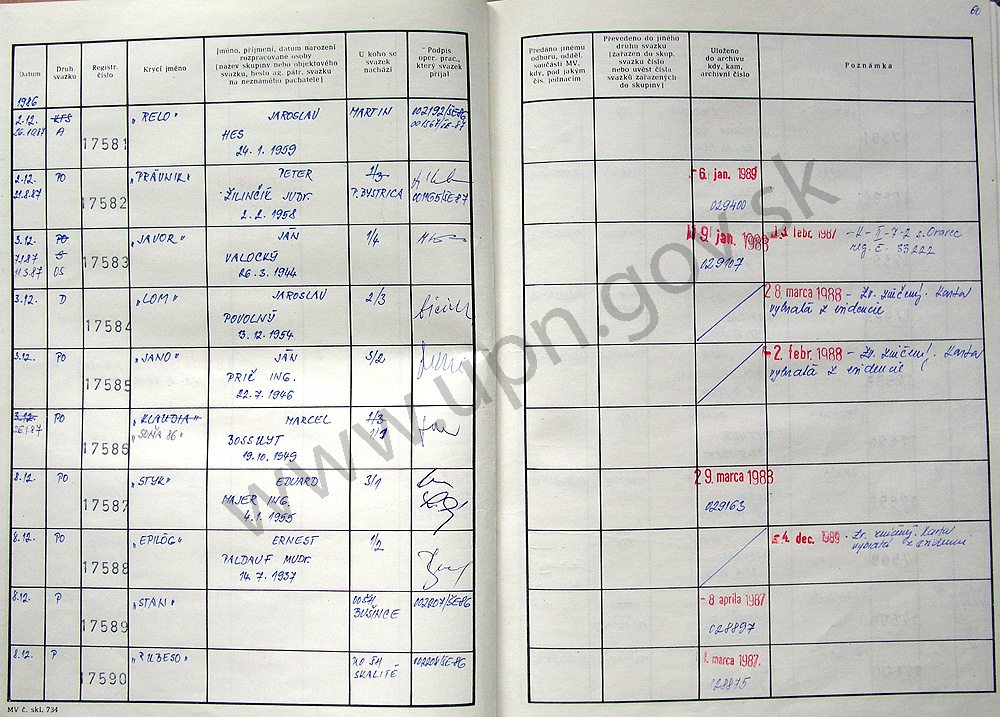 60
Datum
Druh svazku
Registr. číslo
Krycí jméno
[jméno, příjmení, datum narození
rozpracované osoby
[název skupiny nebo objektového
svazku, heslo ag. pátr. svazku
na neznámého pachatele]
U koho se
svazek
nachází
Podpis
oper. prac.,
který svazek
přijal
Předáno jinému
odboru, odděl.
součásti MV,
kdy, pod jakým
čís. jednacím
Převedeno do jiného
druhu svazku
[zařazen do skup.
svazku číslo
nebo uvést čísla
svazků zařazených
do skupiny]
Uloženo
do archivu
kdy, kam,
archivní číslo
Poznámka
1986
2.12. „RELO“ JAROSLAV MARTIN 002192/ŠE-86
A
17581 HES
24. 1. 1959
2.12. PO „PRÁVNIK“ PETER 1/3 - 6. jan. 1989
21.8.87 17582 ŽILINČÍK JUDr. P. BYSTRICA
2. 2. 1958 029400
3.12. PO „JAVOR“ JÁN 1/4 9. jan. 1988 febr. 1987 - K-II-7-2 s. Oravec
7.1.87 S 17583 VALOCKÝ 029107 reg. č. 33222
11.3.87 OS 26. 3. 1944
3.12. D „LOM“ JAROSLAV 2/3 28. marca 1988 - Zv. zničený. Karta
17584 POVOLNÝ vybratá z evidencie
13. 12. 1954
3.12. PO „JANO“ JÁN 3/2 - 2. febr. 1988 - Zv. zničený. Karta
17585 PRIČ ING. vybratá z evidencie
22. 7. 1946
3.12. PO „KLAUDIA“ MARCEL 1/3
26.1.87 17586 „SOŇA 86“ BOSSNYT 1/1
19. 10. 1949
8.12. PO „STYK“ EDUARD 3/1 29. marca 1988
17587 MAJER ING. 029163
4. 1. 1955
8.12. PO „EPILÓG“ ERNEST 1/2 4. dec. 1989 - Zv. zničený. Karta
17588 PALDAUF MUDr. vybratá z evidencie
14. 7. 1937
8.12. P „STAN“ OO ŠH 002207/ŠE-86 - 8 apríla 1987
17589 BUŠINCE 028897
8.12. P 002208/ŠE-86 1. marca 1987.
17590 SKALITÉ 028875
MV č. skl. 734
www.upn.gov.sk